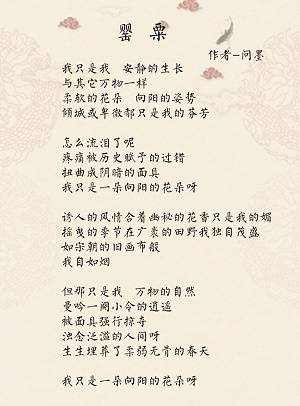 罂 粟
作者-问墨
我只是我 安静的生长
与其它万物一样
柔软的花朵 向阳的姿势
倾城或卑微都只是我的芬芳
怎么流泪了呢
疼痛被历史赋予的过错
扭曲成阴暗的面具
我只是一朵向阳的花朵呀
诱人的风情合着幽秘的花香只是我的媚
摇曳的季节在广袤的田野我独自茂盛
如宋朝的旧画布般
我自如烟
但那只是我 万物的自然
曼吟一阙小令的逍遥
被面具强行掠夺
浊念泛滥的人间呀
生生埋葬了柔弱无骨的春天
我只是一朵向阳的花朵呀